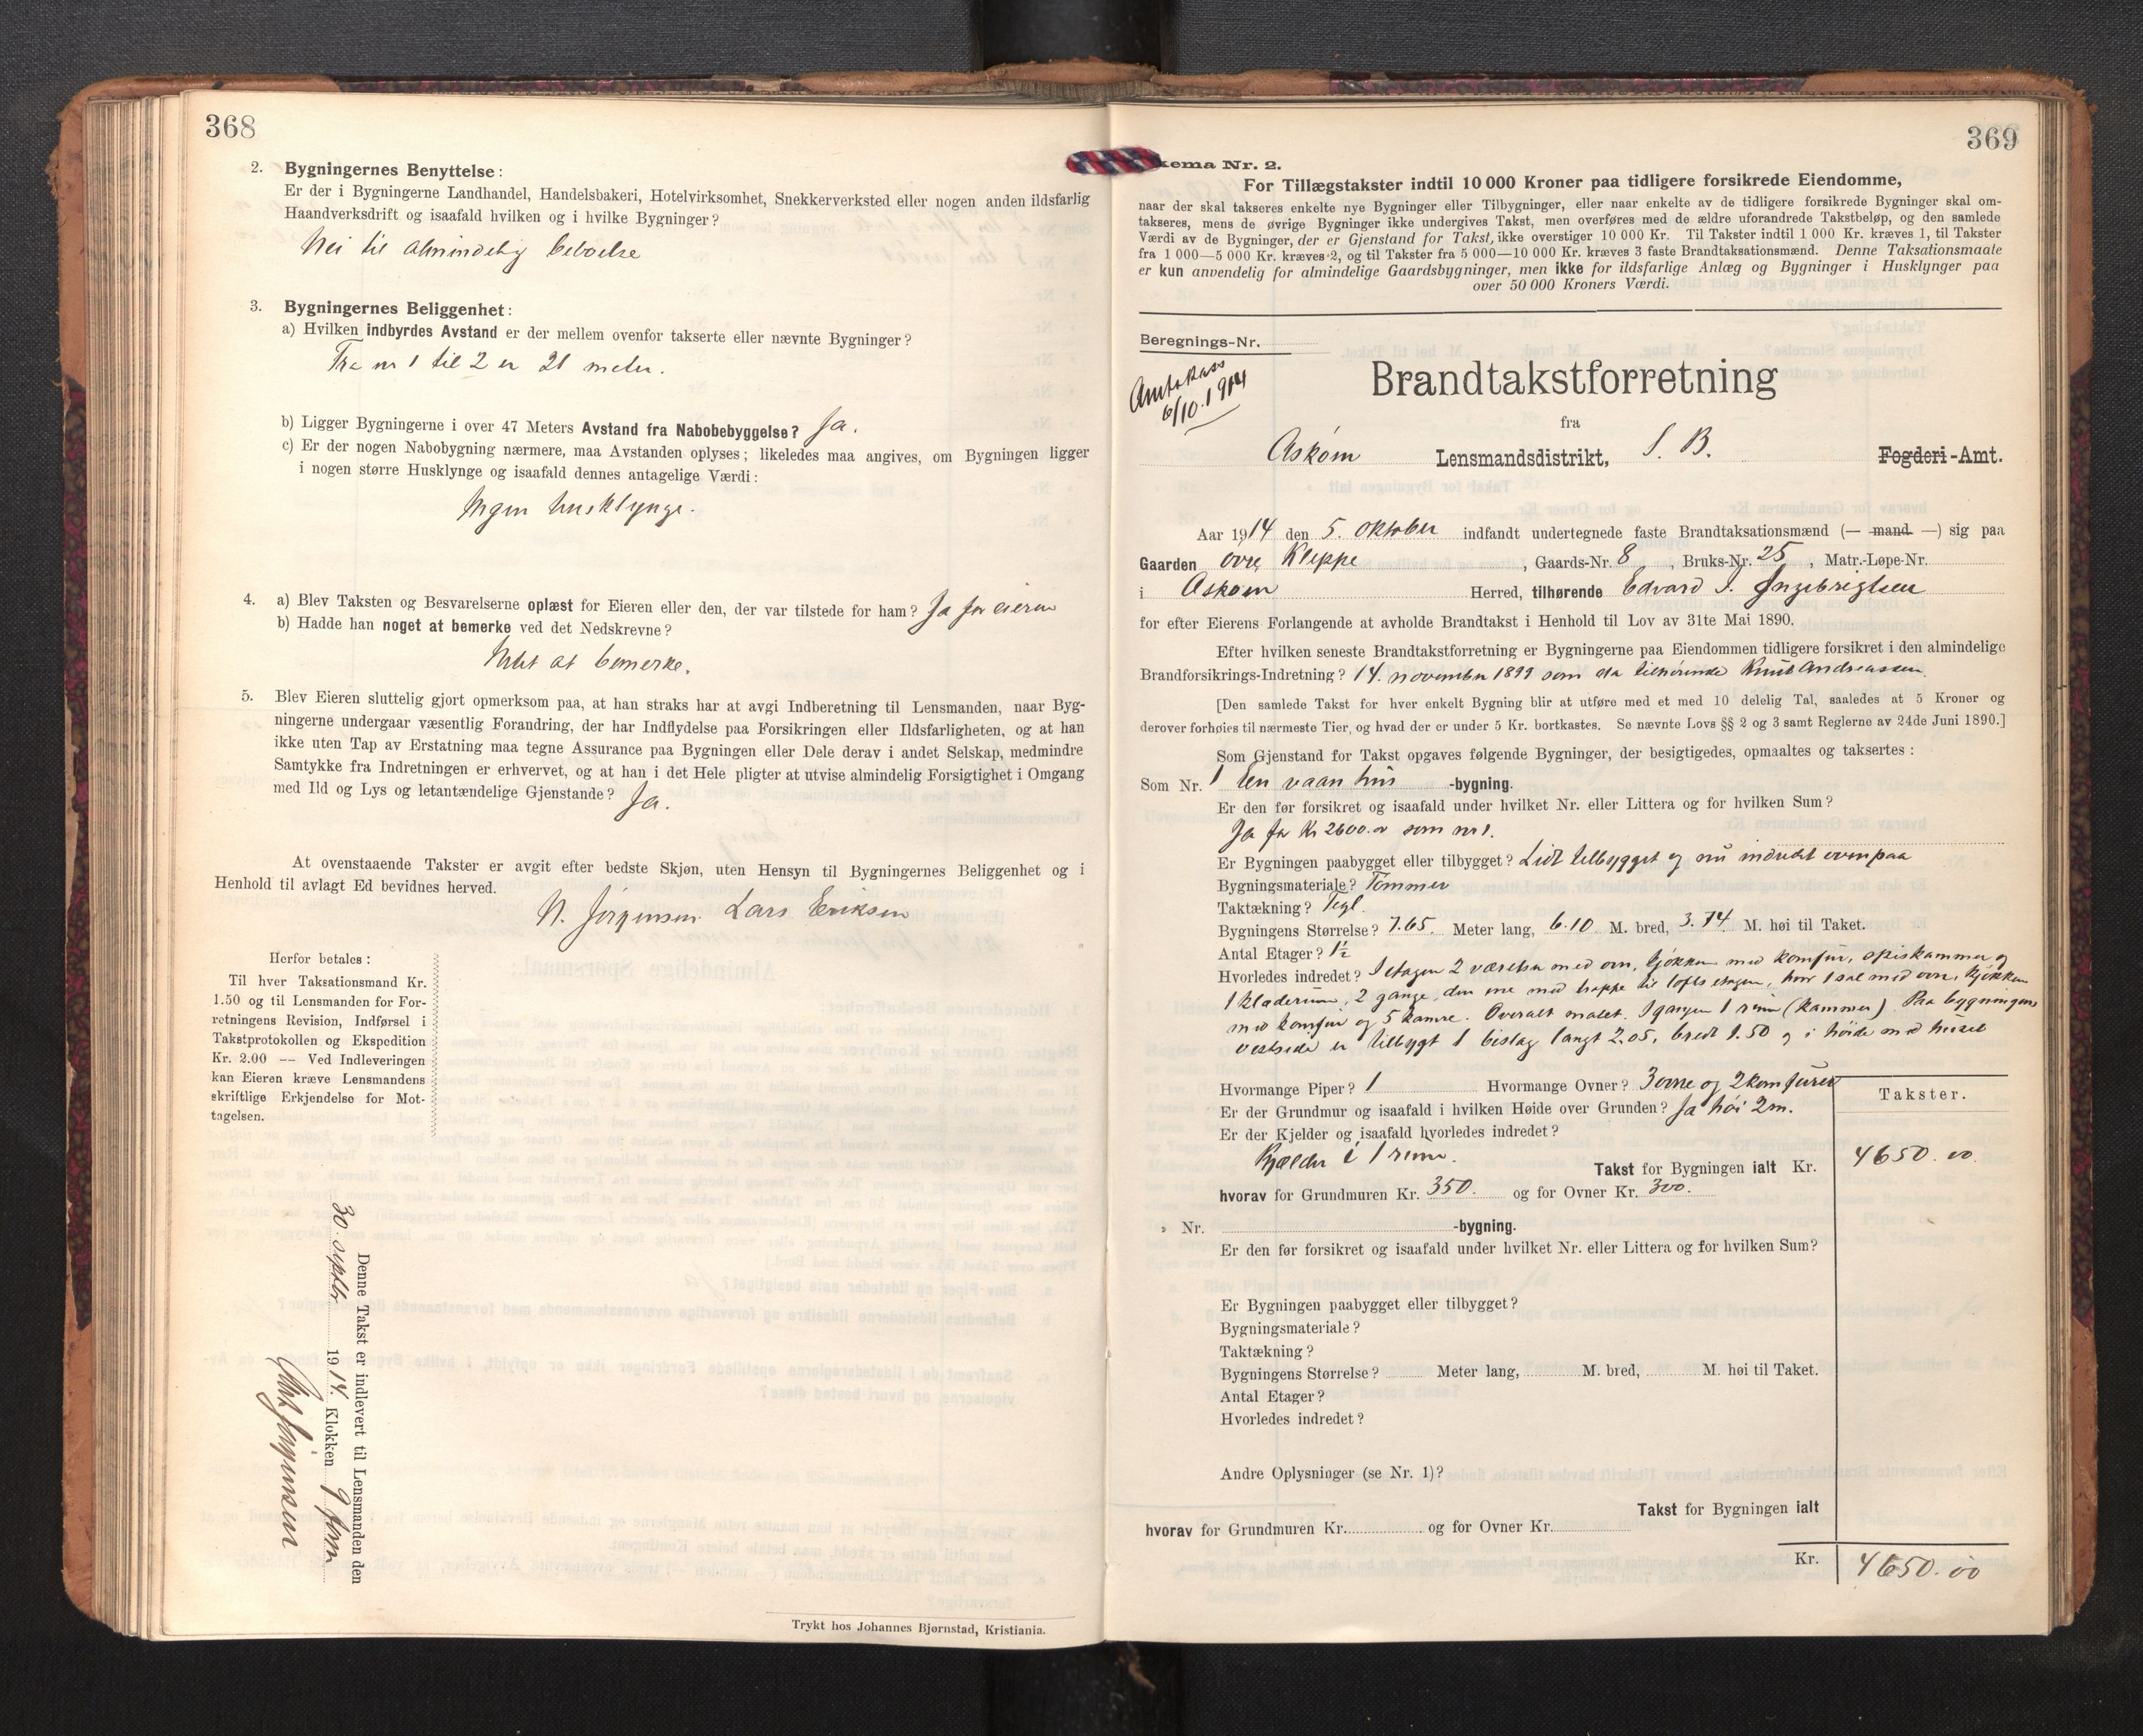 368
2. Bygningernes Benyttelse:
Er der i Bygningerne Landhandel, Handelsbakeri, Hotelvirksomhet, Snekkerverksted eller nogen anden ildsfarlig
Haandverksdrift og isaafald hvilken og i hvilke Bygninger?
Nei til almindelig beboelse
3. Bygningernes Beliggenhet:
a) Hvilken indbyrdes Avstand er der mellem ovenfor takserte eller nævnte Bygninger?
Fra nr 1 til 2 er 21 meter.
b) Ligger Bygningerne i over 47 Meters Avstand fra Nabobebyggelse? Ja.
c) Er der nogen Nabobygning nærmere, maa Avstanden oplyses; likeledes maa angives, om Bygningen ligger
i nogen større Husklynge og isaafald dennes antagelige Værdi:
Ingen husklynge.
4. a) Blev Taksten og Besvarelserne oplæst for Eieren eller den, der var tilstede for ham? Ja for eieren
b) Hadde han noget at bemerke ved det Nedskrevne?
Intet at bemerke.
5. Blev Eieren sluttelig gjort opmerksom paa, at han straks har at avgi Indberetning til Lensmanden, naar Byg-
ningerne undergaar væsentlig Forandring, der har Indflydelse paa Forsikringen eller Ildsfarligheten, og at han
ikke uten Tap av Erstatning maa tegne Assurance paa Bygningen eller Dele derav i andet Selskap, medmindre
Samtykke fra Indretningen er erhvervet, og at han i det Hele pligter at utvise almindelig Forsigtighet i Omgang
med Ild og Lys og letantændelige Gjenstande? Ja.
At ovenstaaende Takster er avgit efter bedste Skjøn, uten Hensyn til Bygningernes Beliggenhet og i
Henhold til avlagt Ed bevidnes herved.
N. Jørgensen Lars Eriksen
Herfor betales:
Til hver Taksationsmand Kr.
1.50 og til Lensmanden for For-
retningens Revision, Indførsel i
Takstprotokollen og Ekspedition
Kr. 2.00 — Ved Indleveringen
kan Eieren kræve Lensmandens
skriftlige Erkjendelse for Mot-
tagelsen.
Denne Takst er indlevert til Lensmanden den
30. septbr 1914. Klokken 9 fom
Trykt hos Johannes Bjørnstad, Kristiania.
369
kema Nr. 2.
For Tillægstakster indtil 10 000 Kroner paa tidligere forsikrede Eiendomme,
naar der skal takseres enkelte nye Bygninger eller Tilbygninger, eller naar enkelte av de tidligere forsikrede Bygninger skal om-
takseres, mens de øvrige Bygninger ikke undergives Takst, men overføres med de ældre uforandrede Takstbeløp, og den samlede
Værdi av de Bygninger, der er Gjenstand for Takst, ikke overstiger 10 000 Kr. Til Takster indtil 1 000 Kr. kræves 1, til Takster
fra 1 000—5 000 Kr. kræves 2, og til Takster fra 5 000—10 000 Kr. kræves 3 faste Brandtaksationsmænd. Denne Taksationsmaate
er kun anvendelig for almindelige Gaardsbygninger, men ikke for ildsfarlige Anlæg og Bygninger i Husklynger paa
over 50 000 Kroners Værdi.
Beregnings-Nr.
Amtskass
6/10.1914
Brandtakstforretning
fra
Askøm Lensmandsdistrikt, S. B. Fogderi-Amt.
Aar 1914 den 5. oktober indfandt undertegnede faste Brandtaksationsmænd (— mand —) sig paa
Gaarden øvre Kleppe, Gaards-Nr. 8, Bruks-Nr. 25, Matr.-Løpe-Nr.
i Askøm Herred, tilhørende Edvard I. Ingebrigtsen
for efter Eierens Forlangende at avholde Brandtakst i Henhold til Lov av 31te Mai 1890.
Efter hvilken seneste Brandtakstforretning er Bygningerne paa Eiendommen tidligere forsikret i den almindelige
Brandforsikrings-Indretning? 14. november 1899 som da tilhørende Knut Andreassen
[Den samlede Takst for hver enkelt Bygning blir at utføre med et med 10 delelig Tal, saaledes at 5 Kroner og
derover forhøies til nærmeste Tier, og hvad der er under 5 Kr. bortkastes. Se nævnte Lovs §§ 2 og 3 samt Reglerne av 24de Juni 1890.]
Som Gjenstand for Takst opgaves følgende Bygninger, der besigtigedes, opmaaltes og taksertes:
Som Nr. 1 En vaanhus -bygning.
Er den før forsikret og isaafald under hvilket Nr. eller Littera og for hvilken Sum?
Ja for Kr 2600.00 som nr 1.
Er Bygningen paabygget eller tilbygget? Lidt tilbygget og nu indredet ovenpaa
Bygningsmateriale? Tømmer
Taktækning? Tegl.
Bygningens Størrelse? 7.65. Meter lang, 6.10 M. bred, 3.74 M. høi til Taket.
Antal Etager? 1½
Hvorledes indredet? I etagen 2 værelser med ovn, kjøkken med komfur, spiskammer og
1 klæderum, 2 gange, den ene med trappe til lofts etagen, hvor 1 sal med ovn, kjøkken
med komfur og 5 kamre. Overalt malet. I gangen 1 rum (kammer). Paa bygningens
vestside er tilbygt 1 bislag langt 2.05, bredt 1.50 og i høide med huset
Hvormange Piper? 1 Hvormange Ovner? 3 ovne og 2 komfurer
Er der Grundmur og isaafald i hvilken Høide over Grunden? Ja høi 2m.
Er der Kjelder og isaafald hvorledes indredet?
Kjælder i 1 rum.
Takster.
Takst for Bygningen ialt Kr. 4650.00
hvorav for Grundmuren Kr. 350. og for Ovner Kr. 300.
» Nr. -bygning.
Er den før forsikret og isaafald under hvilket Nr. eller Littera og for hvilken Sum?
Er Bygningen paabygget eller tilbygget?
Bygningsmateriale?
Taktækning?
Bygningens Størrelse? Meter lang, M. bred, M. høi til Taket.
Antal Etager?
Hvorledes indredet?
Andre Oplysninger (se Nr. 1)?
Takst for Bygningen ialt
hvorav for Grundmuren Kr. og for Ovner Kr.
Kr. 4650.00